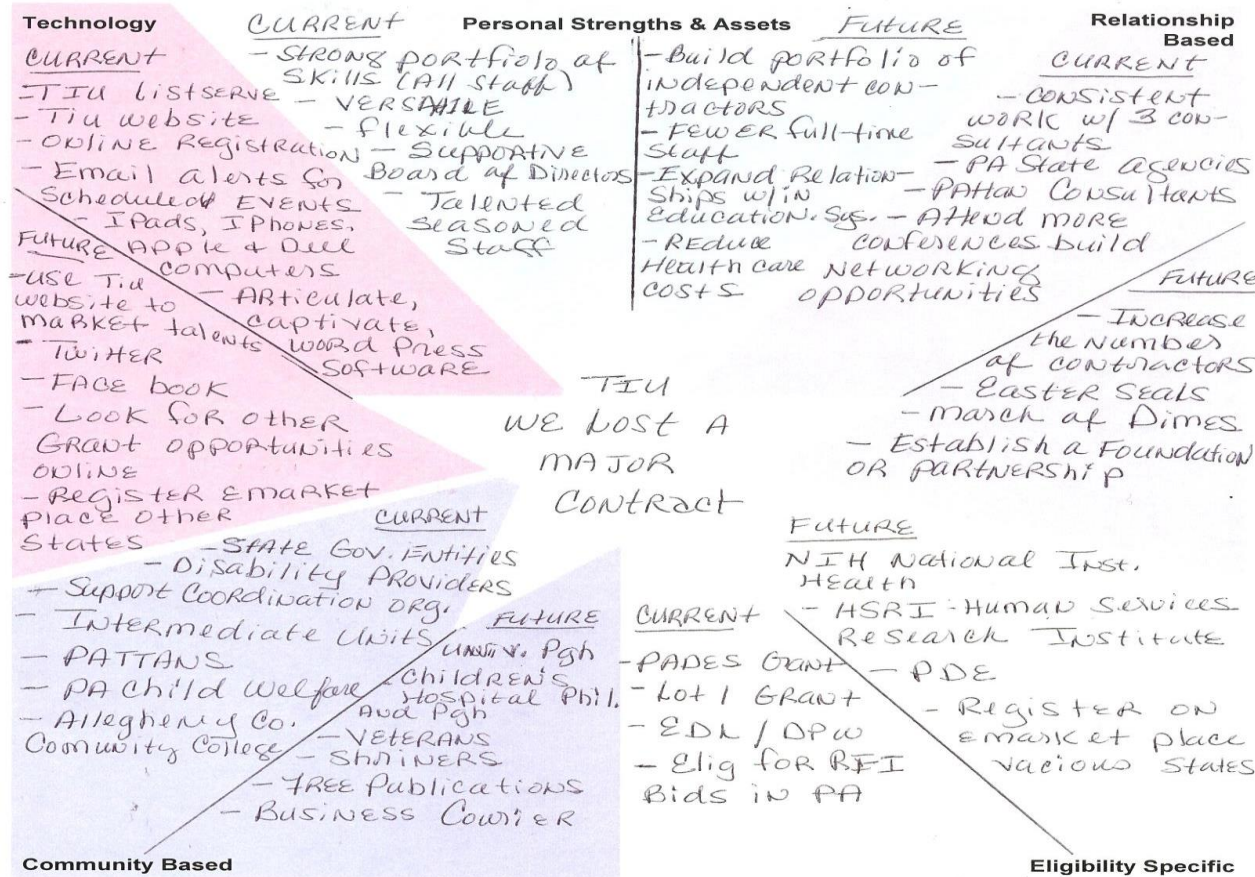 Technology
CURRENT
- TIU Listserve
- Tiu website
- Online Registration
- Email alerts for
Scheduled EVENTS
- IPads, IPhones,
Apple & Dell
computers
- ARticulate,
captivate,
word Press
Software
FUTURE
- USE Tiu
website to
MARKET talents
- Twitter
- FACE book
- Look for other
GRANT opportunities
online
- Register Emarket
place other
States
Personal Strengths & Assets
CURRENT
- STRONG portfiolo of
Skills (All Staff)
- VERSATILE
- flexible
- Supportive
Board of Directors
- Talented
seasoned
Staff
FUTURE
- Build portfolio of
independent con-
tractors
- FEWER full-time
Staff
- Expand Relation-
ships w/in
Education. Sys.
- Reduce
Health care
costs
Relationship
Based
CURRENT
- Consistent
work w/ 3 con-
sultants
- PA State agencies
- PATtan Consultants
- Attend more
conferences build
Networking
opportunities
FUTURE
- Increase
the number
of contractors
- Easter Seals
- March of Dimes
- Establish a Foundation
or partnership
TIU
WE LOST A
MAJOR
CONTRACT
CURRENT
- STATE Gov. Entities
- Disability Providers
- Support Coordination org.
- Intermediate Units
- PATTANS
- PA Child Welfare
- Allegheny Co.
Comunity College
FUTURE
Univ. Pgh
- Children's
Hospital Phil.
And Pgh
- VETERANS
- Shriners
- FREE Publications
- Business Courier
Community Based
CURRENT
- PADES Grant
- Lot 1 GRANT
- EDL / DPW
- Elig for RFI
Bids in PA
FUTURE
NIH National Inst.
Health
- HSRI - Human Services
Research Institute
- PDE
- Register on
emarket place
various States
Eligibility Specific